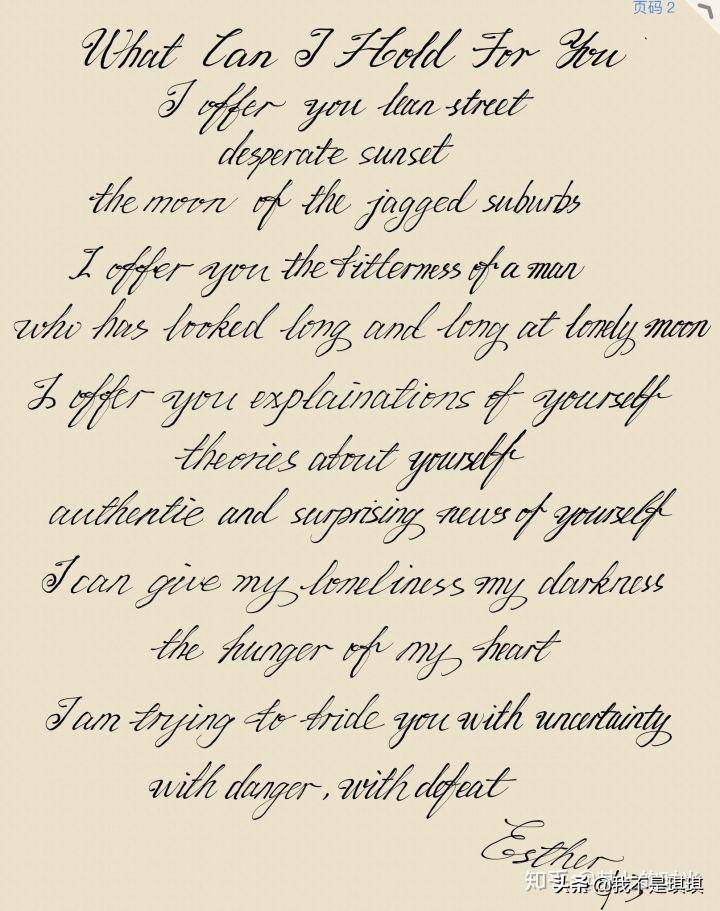 页码 2
What Can I Hold For You
I offer you lean street
desperate sunset
the moon of the jagged suburbs
I offer you the bitterness of a man
who has looked long and long at lonely moon
I offer you explainations of yourself
theories about yourself
authentic and surprising news of yourself
I can give my loneliness my darkness
the hunger of my heart
I am trying to bride you with uncertainty
with danger, with defeat
Esther
知乎
头条 @我不是琪琪